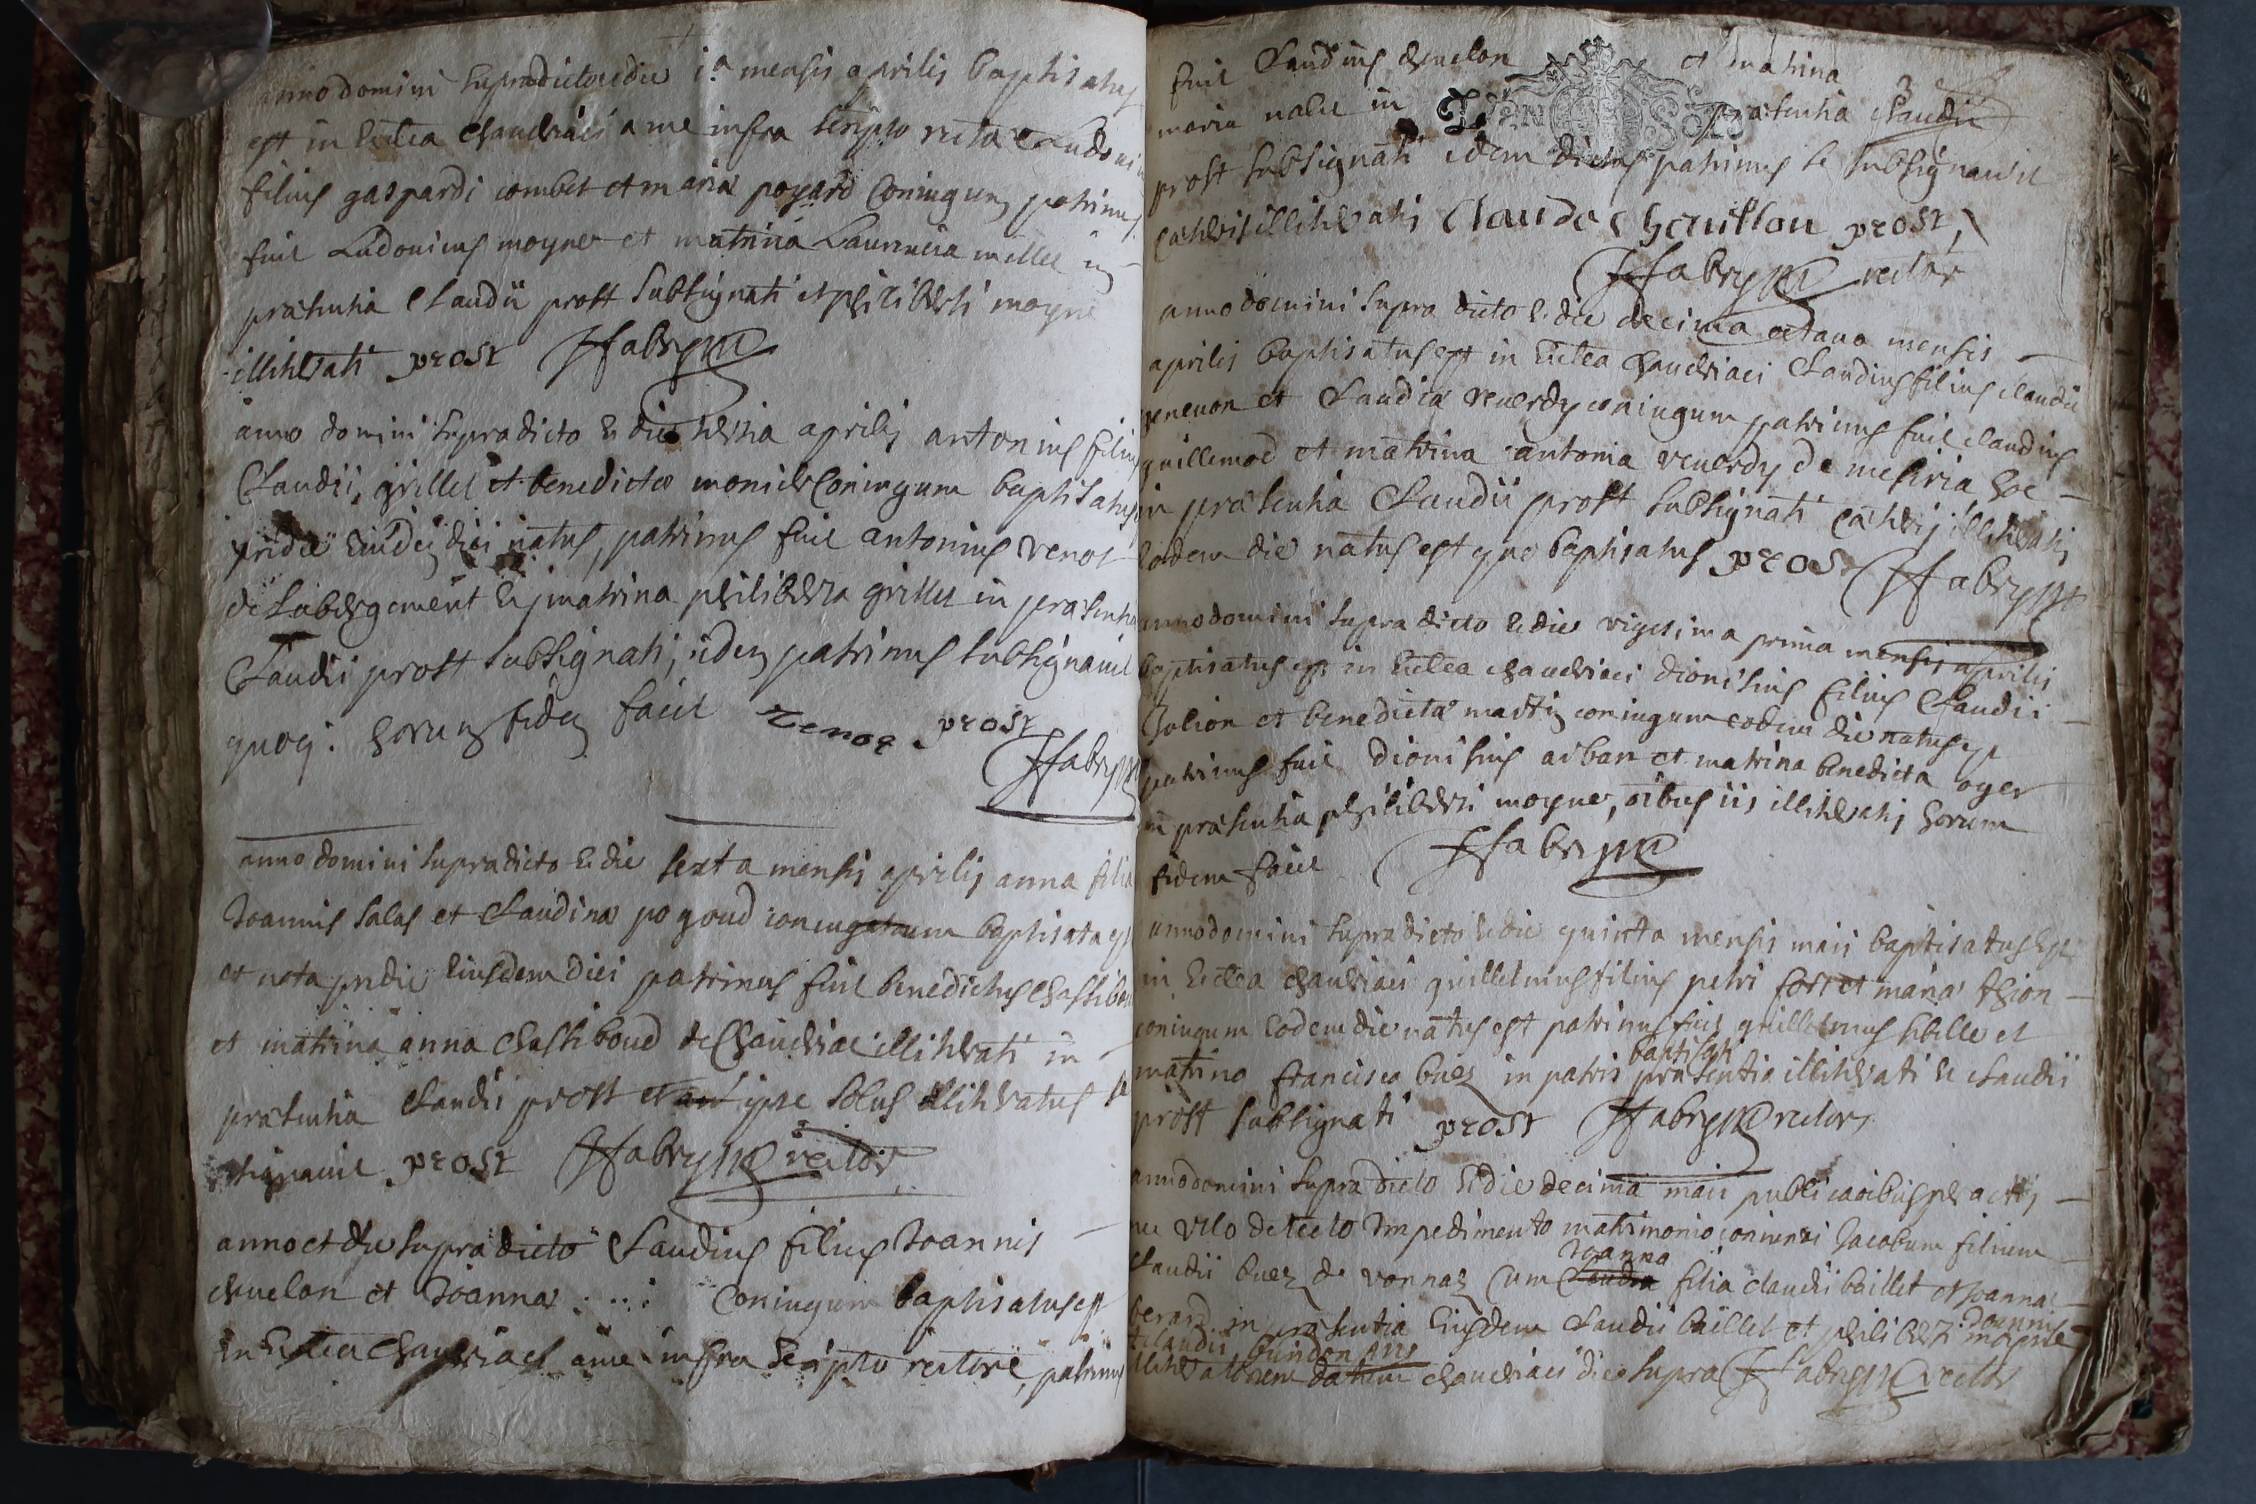 anno domini supradicto et die 1a mensis aprilis baptisatus
est in Ecclea chaudriaci a me infra scripto rectore Ludovicus
filius gaspardi combet et maria pogard Coniugum patrinus
fuit Ludovicus moyne et matrina Laurencia millet in
præsentia Claudii prost subsignati et philiberti moyne
illitterati prost Ffabry
anno domini supradicto et die tertia aprilis antonius filius
Claudii grillet et benedictæ monier Coniugum baptisatus
pridie eiusdem diei natus, patrinus fuit antonius venot
de Labergement et matrina philiberta grillet in præsentia
Claudii prost subsignati, idem patrinus subsignavit
quoq. horum fidem facit venot prost
Ffabry
anno domini supradicto et die sexta mensis aprilis anna filia
Joannis salas et Claudinæ pogoud coniugum baptisata est
et nata pridie Eiusdem diei patrinus fuit benedictus chassiboud
et matrina anna chassiboud de chaudriac illitterati in
præsentia Claudii prost ipse solus illitteratus se
signavit prost Ffabry rector
anno et die supradicto Claudius filius Joannis
chuelon et Joannæ .... Coniugum baptisatus est
in Ecclea chaudriaci a me infra scripto rectore, patrinus
fuit Claudius chuelon et matrina
maria nalet in præsentia Claudii
prost subsignati idem dictus patrinus se subsignavit
cæteris illitteratis Claude prost
Ffabry rector
anno domini supra dicto et die decima octava mensis
aprilis baptisatus est in Ecclea chaudriaci Claudius filius claudii
venevon et Claudiæ reverdy coniugum patrinus fuit claudius
guillemod et matrina antonia reverdy de mesiria hoc
in præsentia Claudii prost subsignati cæteris illitteratis
eodem die natus est quo baptisatus prost Ffabry
anno domini supra dicto et die vigesima prima mensis aprilis
baptisatus est in Ecclea chaudriaci dionisius filius Claudii
Jolion et benedictæ martin coniugum eodem die natus est
patrinus fuit dionisius arban et matrina benedicta oger
in præsentia philiberti moyne, oibus iis illitteratis horum
fidem facit Ffabry
anno domini supradicto et die quinta mensis maii baptisatus est
in Ecclea chaudriaci guillelmus filius petri fort et maria thion
coniugum eodem die natus est patrinus fuit guillelmus sibille et
matrina francisca buez in patris baptisati præsentia illitterati et claudii
prost subsignati prost Ffabry rector
anno domini supra dicto et die decima maii publicaoibus peractis
nec ullo detecto Impedimento matrimonio coniunxi Jacobum filium
claudii buez de vonnaz cum Joanna filia claudii baillet et Joannæ
berard in præsentia Eiusdem Claudii baillet et philiberti moyne
et claudii Joannis
illitteratorum datum chaudriaci die supra Ffabry rector